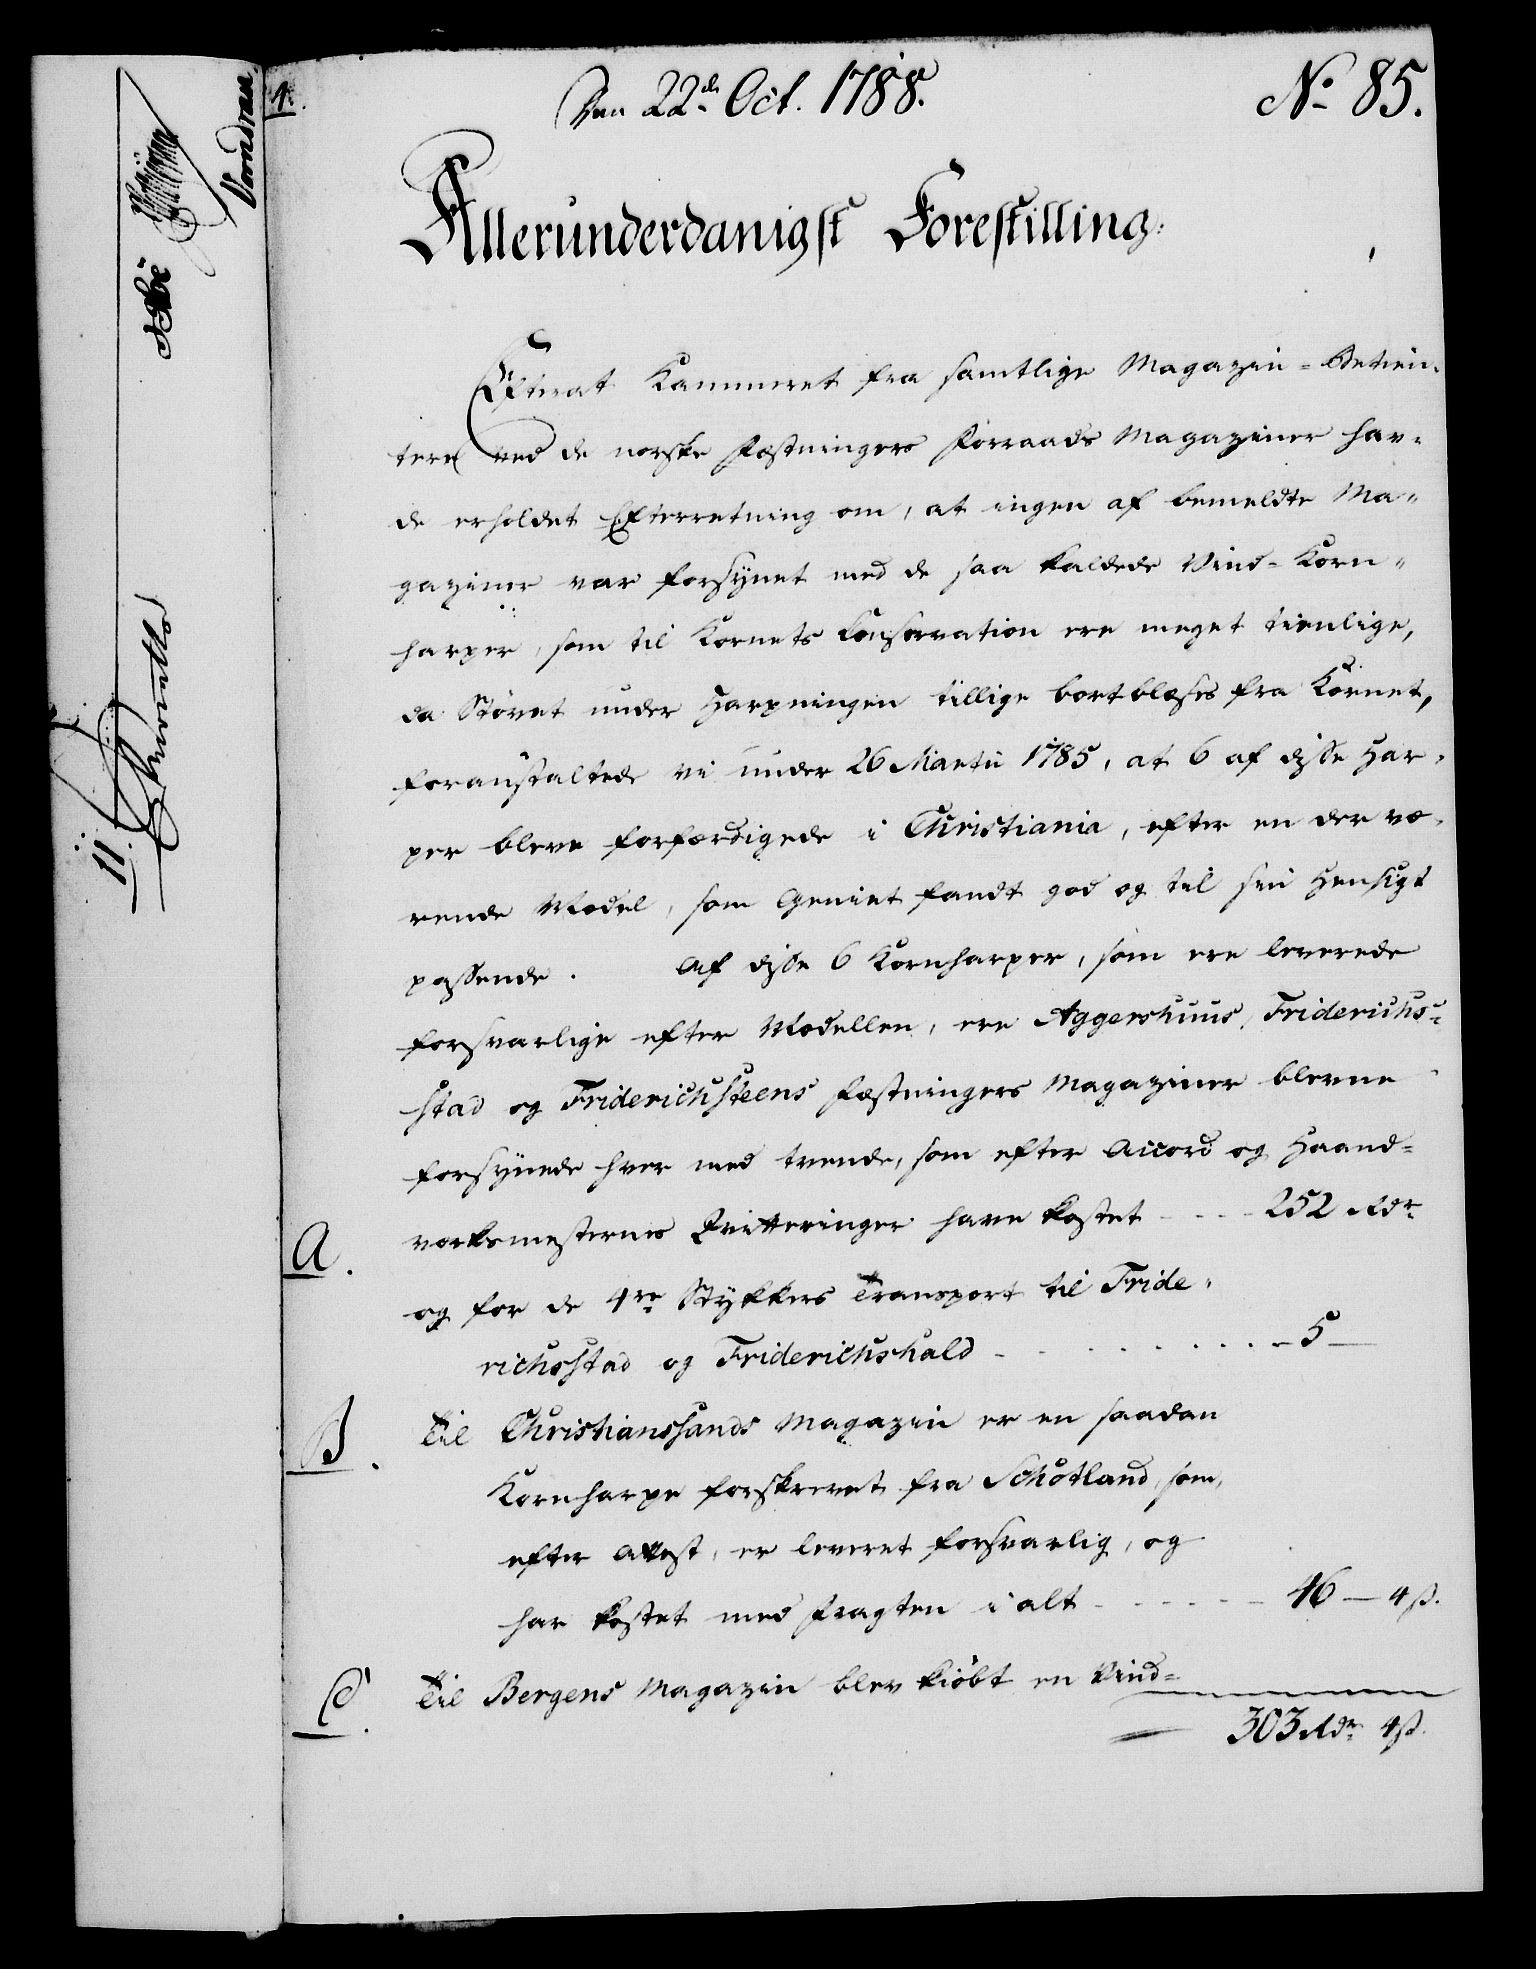 4.
Den 22de Oct. 1788.
No 85.
Allerunderdanigst Forestilling:
Efterat Kammeret fra samtlige Magazin=Betien-
tere ved de norske Fæstningers Forraads Magaziner hav-
de erholdet Efterretning om, at ingen af bemeldte Ma-
gaziner var forsÿnet med de saa kaldede Vind=Korn-
harper, som til Kornets Conservation ere meget tienlige,
da Støvet under Harpningen tillige bortblæses fra Kornet,
foranstaltede vi under 26 Martii 1785, at 6 af disse Har-
per bleve forfærdigede i Christiania, efter en der væ-
rende Model, som Geniet fandt god og til sin Hensigt
passende. Af disse 6 Kornharper, som ere leverede
forsvarlige efter Modellen, ere Aggershuus, Friderichs-
stad og Friderichsteens Fæstningers Magaziner blevne
forsÿnede hver med tvende, som efter Accord og Haand-
værksmesternes Qvitteringer have kostet - - - 252 Rdr
A.
og for de 4re Stÿkkers Transport til Fride-
richsstad og Friderichshald - - - - - - - 5 —
B.
Til Christianssands Magazin er en saadan
Kornharpe forskrevet fra Schotland, som,
efter Attest, er leveret forsvarlig, og
har kostet med Fragten i alt - - - - - - 46 — 4 ß.
C.
Til Bergens Magazin blev kiøbt en Vind=
303 Rdr 4 ß.
11.